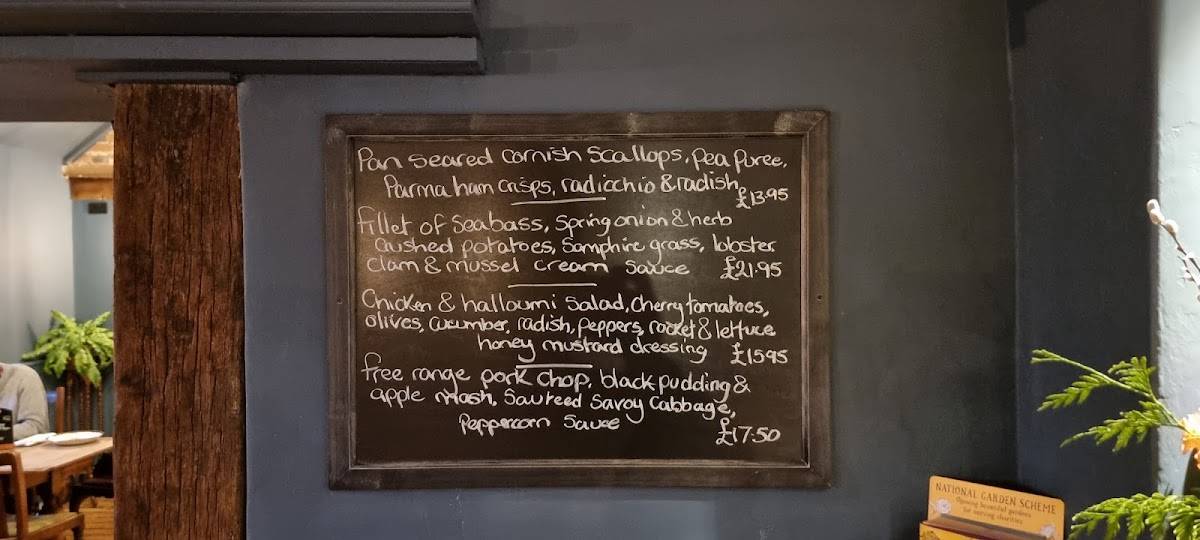 Pan Seared Cornish Scallops, Pea Puree,
Parma ham crisps, radicchio & radish
£13.95
fillet of Seabass, Spring onion & herb
Crushed potatoes, Samphire grass, lobster
Clam & mussel cream Sauce £21.95
Chicken & halloumi Salad, Cherry tomatoes,
olives, cucumber, radish, peppers, rocket & lettuce
honey mustard dressing £15.95
free range pork chop, black pudding &
apple mash, Sauteed Savoy Cabbage,
Peppercorn Sauce £17.50
NATIONAL GARDEN SCHEME
Opening beautiful gardens
for nursing charities